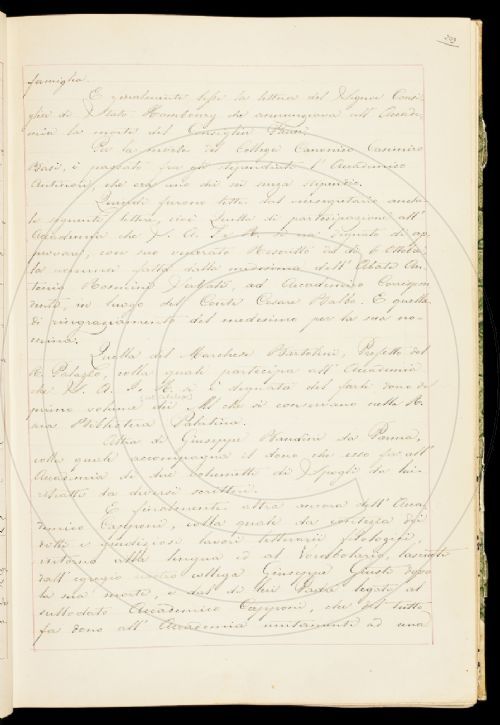 303
famiglia.
E parimente lesse la lettera del Signor Consi-
glier di Stato Rambourg che annunziava all' Accade-
mia la morte del Consiglier
Per la morte del Collega Canonico Casimiro
Basi, i passati fra gli stipendiati l' Accademico
che era uno di in mezzo stipendio.
Quindi furono lette dal segretario anche
le seguenti lettere, cioè Quella di partecipazione all'
Accademia che S. A. I. e R. si era degnata di ap-
provare, con suo venerato Rescritto del dì 6 Ottobre,
la nomina fatta dalla medesima dell' Abate An-
tonio Rosmini ad Accademico Corrispon-
dente, in luogo del Conte Cesare Balbo. E quella
di ringraziamento del medesimo per la sua no-
mina.
Quella del Marchese Bartolini, Prefetto del
R. Palazzo, colla quale partecipa all' Accademia
che S. A. I. R. si è degnata del farle dono del
primo volume dei Mss. che si conservano nella R.
sua Biblioteca Palatina.
Altra di Giuseppe da Parma,
colla quale accompagna il dono che esso fa all'
Accademia di due volumetti di Spogli da lui
da diversi scrittori.
E finalmente altra ancora dell' Acca-
demico Capponi, colla quale dà contezza dei
dotti e giudiziosi lavori letterarii filologici,
intorno alla lingua ed al Vocabolario, lasciati
dall' egregio nostro collega Giuseppe Giusti dopo
la sua morte, e dal di lui Padre legati al
suddodato Accademico Capponi, che di tutto
fa dono all' Accademia unitamente ad una